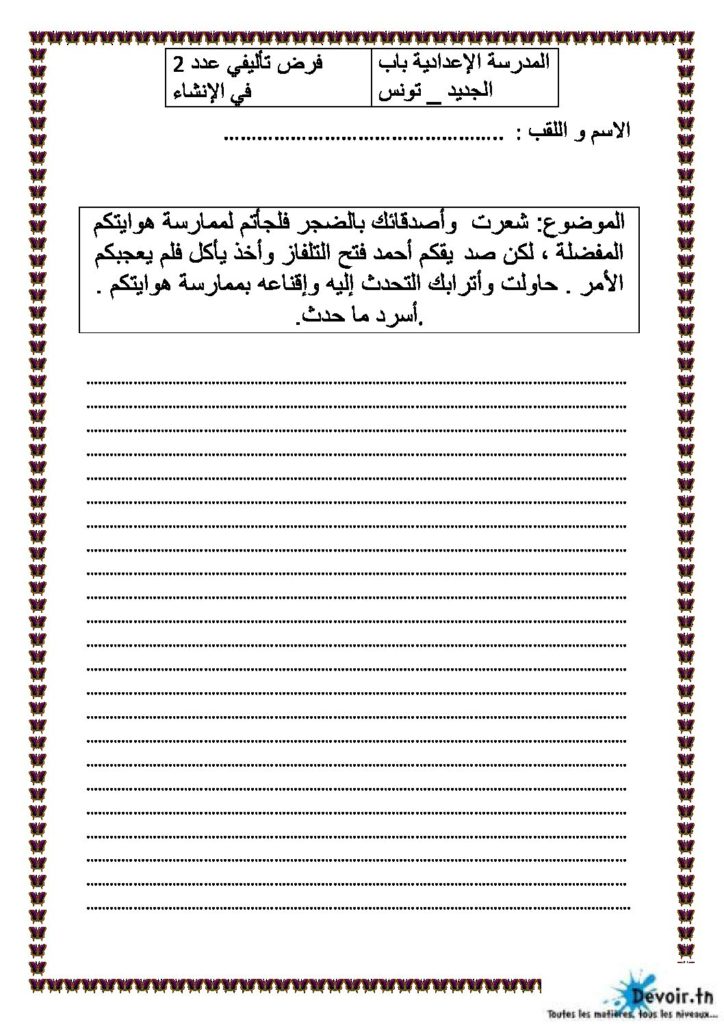 المدرسة الإعدادية باب
الجديد _ تونس
فرض تأليفي عدد 2
في الإنشاء
الاسم و اللقب : ..................................................
الموضوع: شعرت وأصدقائك بالضجر فلجأتم لممارسة هوايتكم
المفضلة ، لكن صد يقكم أحمد فتح التلفاز وأخذ يأكل فلم يعجبكم
الأمر . حاولت وأترابك التحدث إليه وإقناعه بممارسة هوايتكم .
.أسرد ما حدث.
Devoir.tn
Toutes les matières, tous les niveaux...